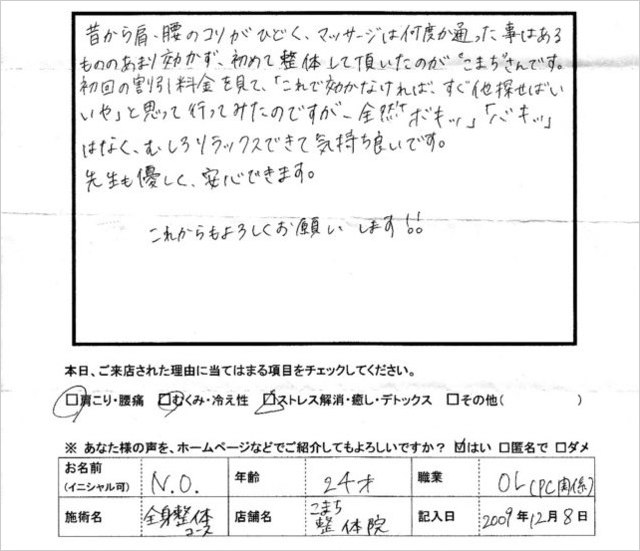 昔から肩、腰のコリがひどく、マッサージは何度か通った事はある
もののあまり効かず、初めて整体して頂いたのが"こまち"さんです。
初回の割引料金を見て、「これで効かなければ、すぐ他探せばい
いや」と思って行ってみたのですが、全然「ボキッ」「バキッ」
はなく、むしろリラックスできて気持ち良いです。
先生も優しく、安心できます。
これからもよろしくお願いします!!
本日、ご来店された理由に当てはまる項目をチェックしてください。
□肩こり・腰痛 □むくみ・冷え性 □ストレス解消・癒し・デトックス □その他( )
※ あなた様の声を、ホームページなどでご紹介してもよろしいですか? ☑はい □匿名で □ダメ
お名前 (イニシャル可) N.O. 年齢 24才 職業 OL(PC関係)
施術名 全身整体コース 店舗名 こまち整体院 記入日 2009年12月8日